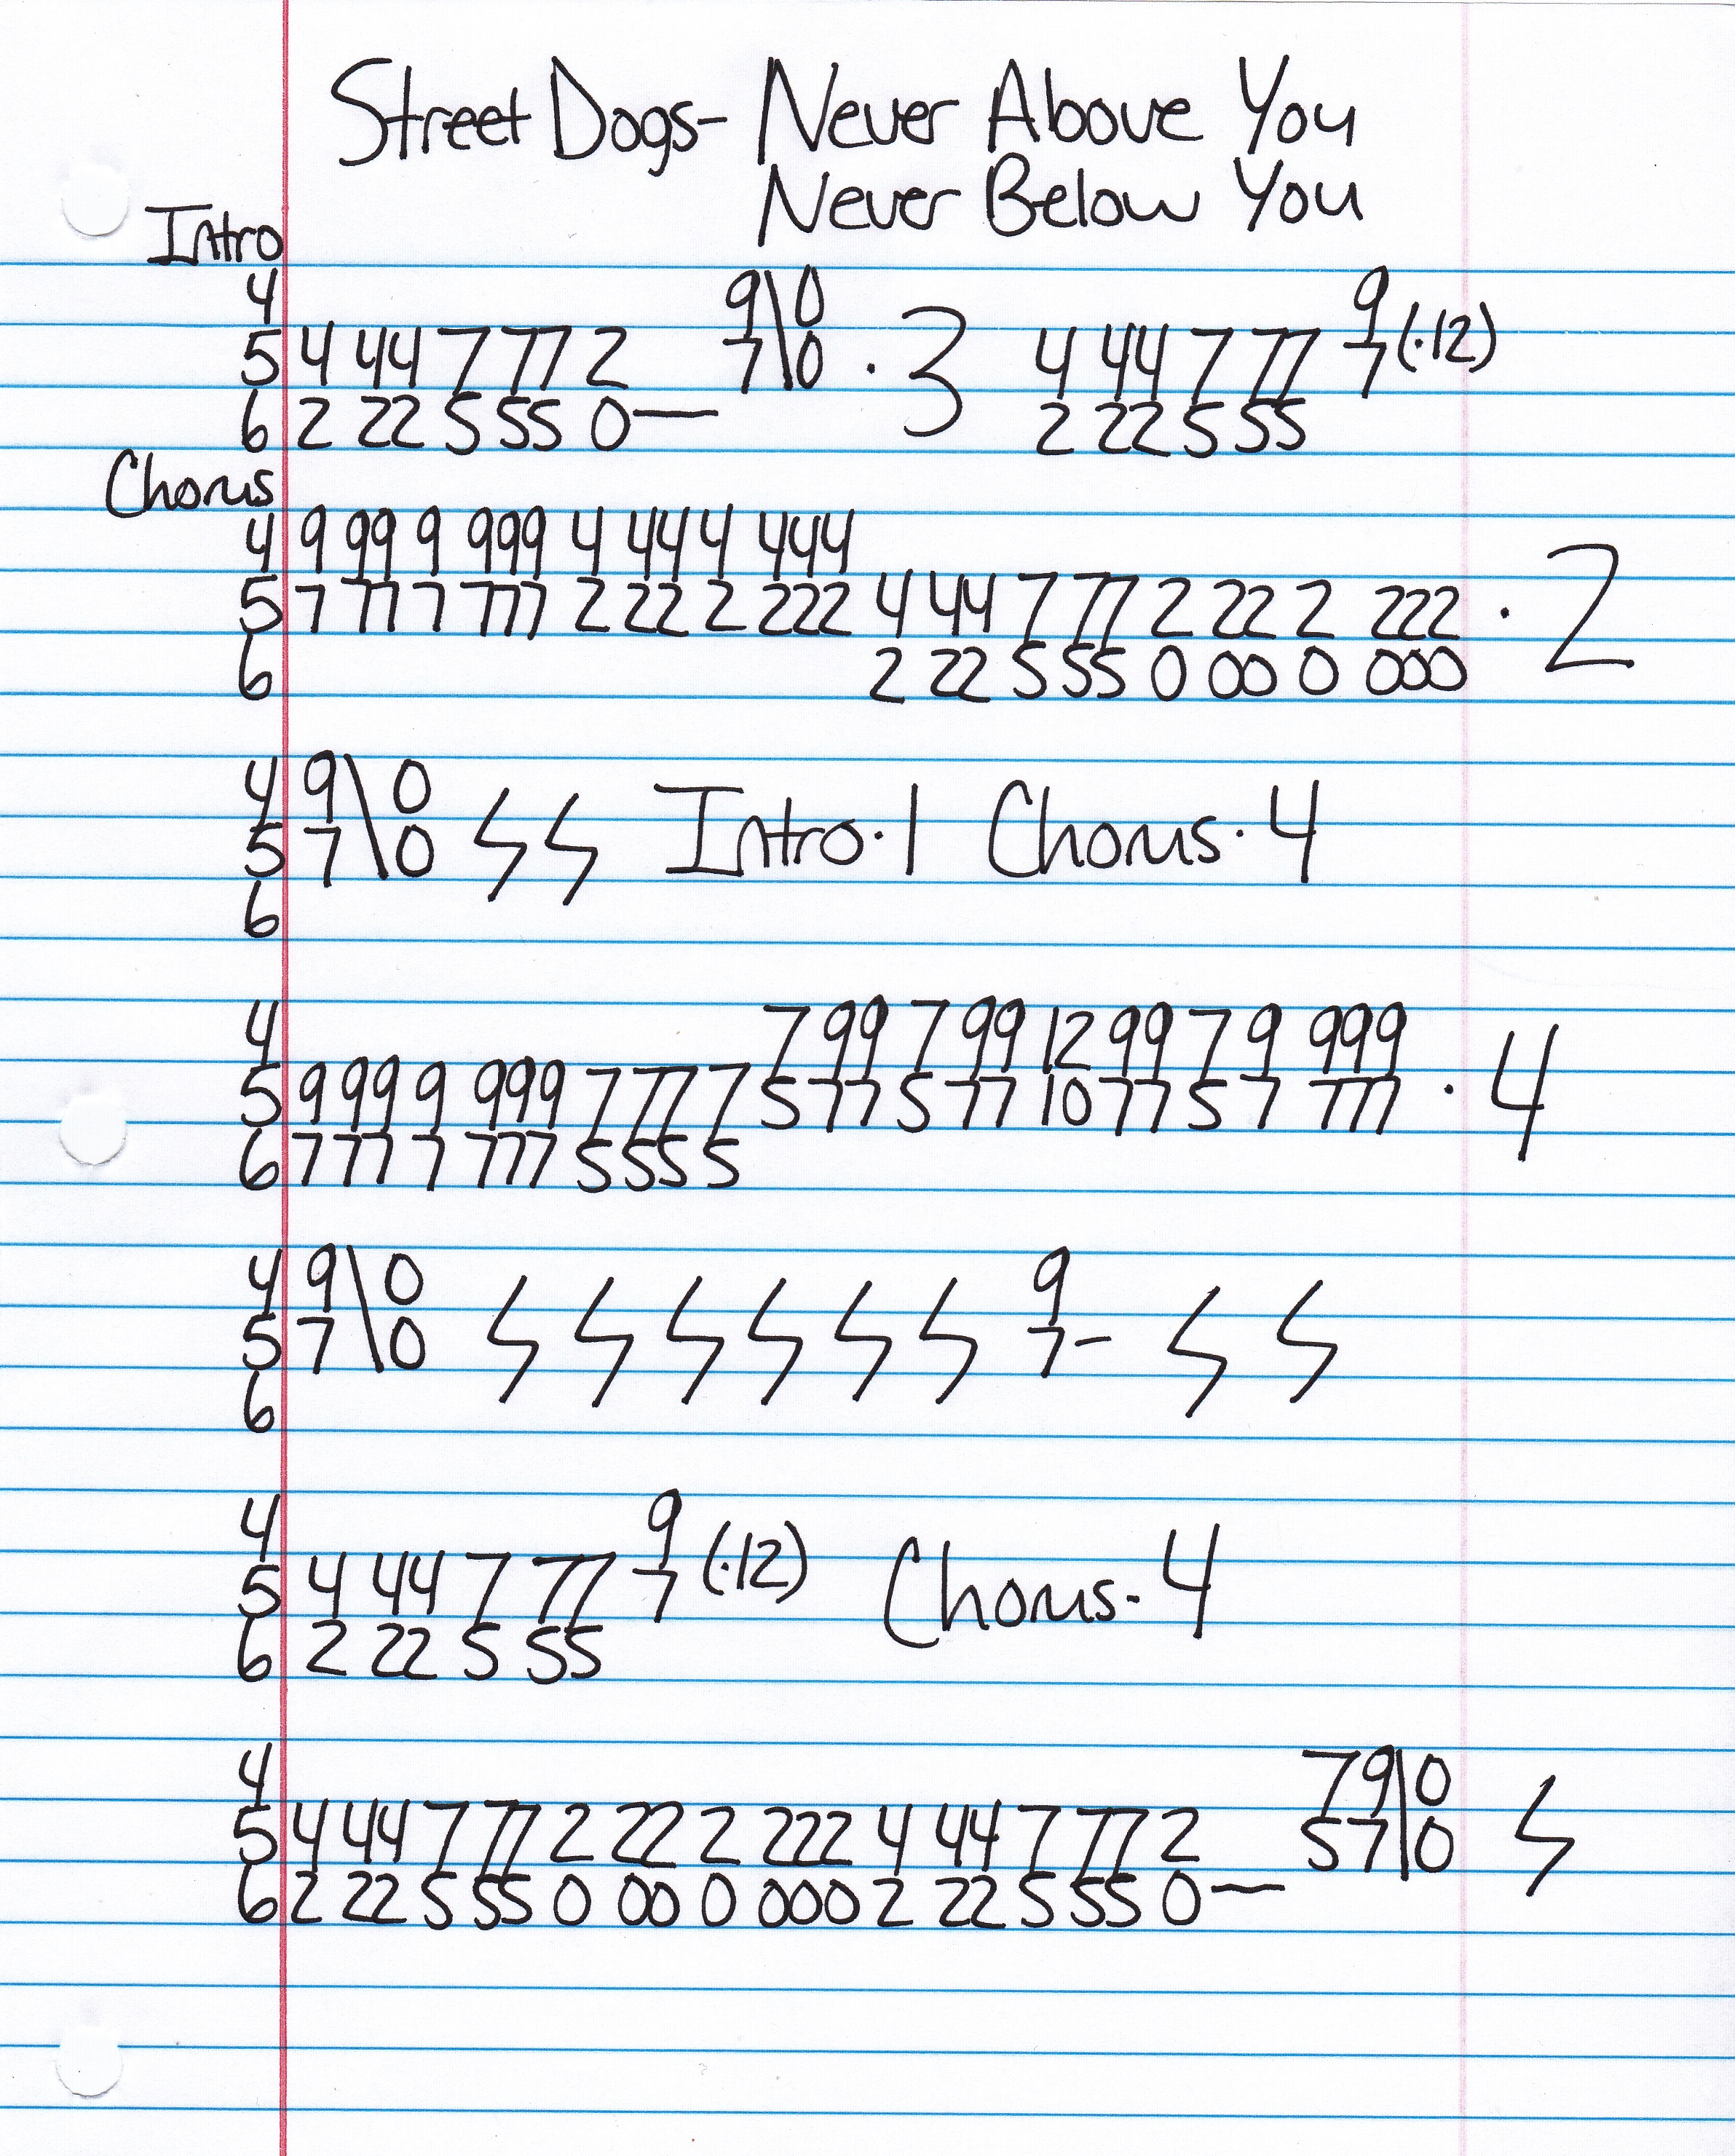 Street Dogs- Never Above You
Never Below You
Intro
4 9\0 9
5 4 44 7 77 2 7\0 · 3 4 44 7 77 7 (·12)
6 2 22 5 55 0— 2 22 5 55
Chorus
4 9 99 9 999 4 44 4 444
5 7 77 7 777 2 22 2 222 4 44 7 77 2 22 2 222 · 2
6 2 22 5 55 0 00 0 000
4 9\0
5 7\0 ϟ ϟ Intro·1 Chorus·4
6
4 7 99 7 99 12 99 7 9 999
5 9 99 9 999 7 77 7 5 77 5 77 10 77 5 7 777 · 4
6 7 77 7 777 5 55 5
4 9\0 9
5 7\0 ϟ ϟ ϟ ϟ ϟ ϟ 7- ϟ ϟ
6
4 9
5 4 44 7 77 7 (·12) Chorus·4
6 2 22 5 55
4 79|0
5 4 44 7 77 2 22 2 222 4 44 7 77 2 57|0 ϟ
6 2 22 5 55 0 00 0 000 2 22 5 55 0—